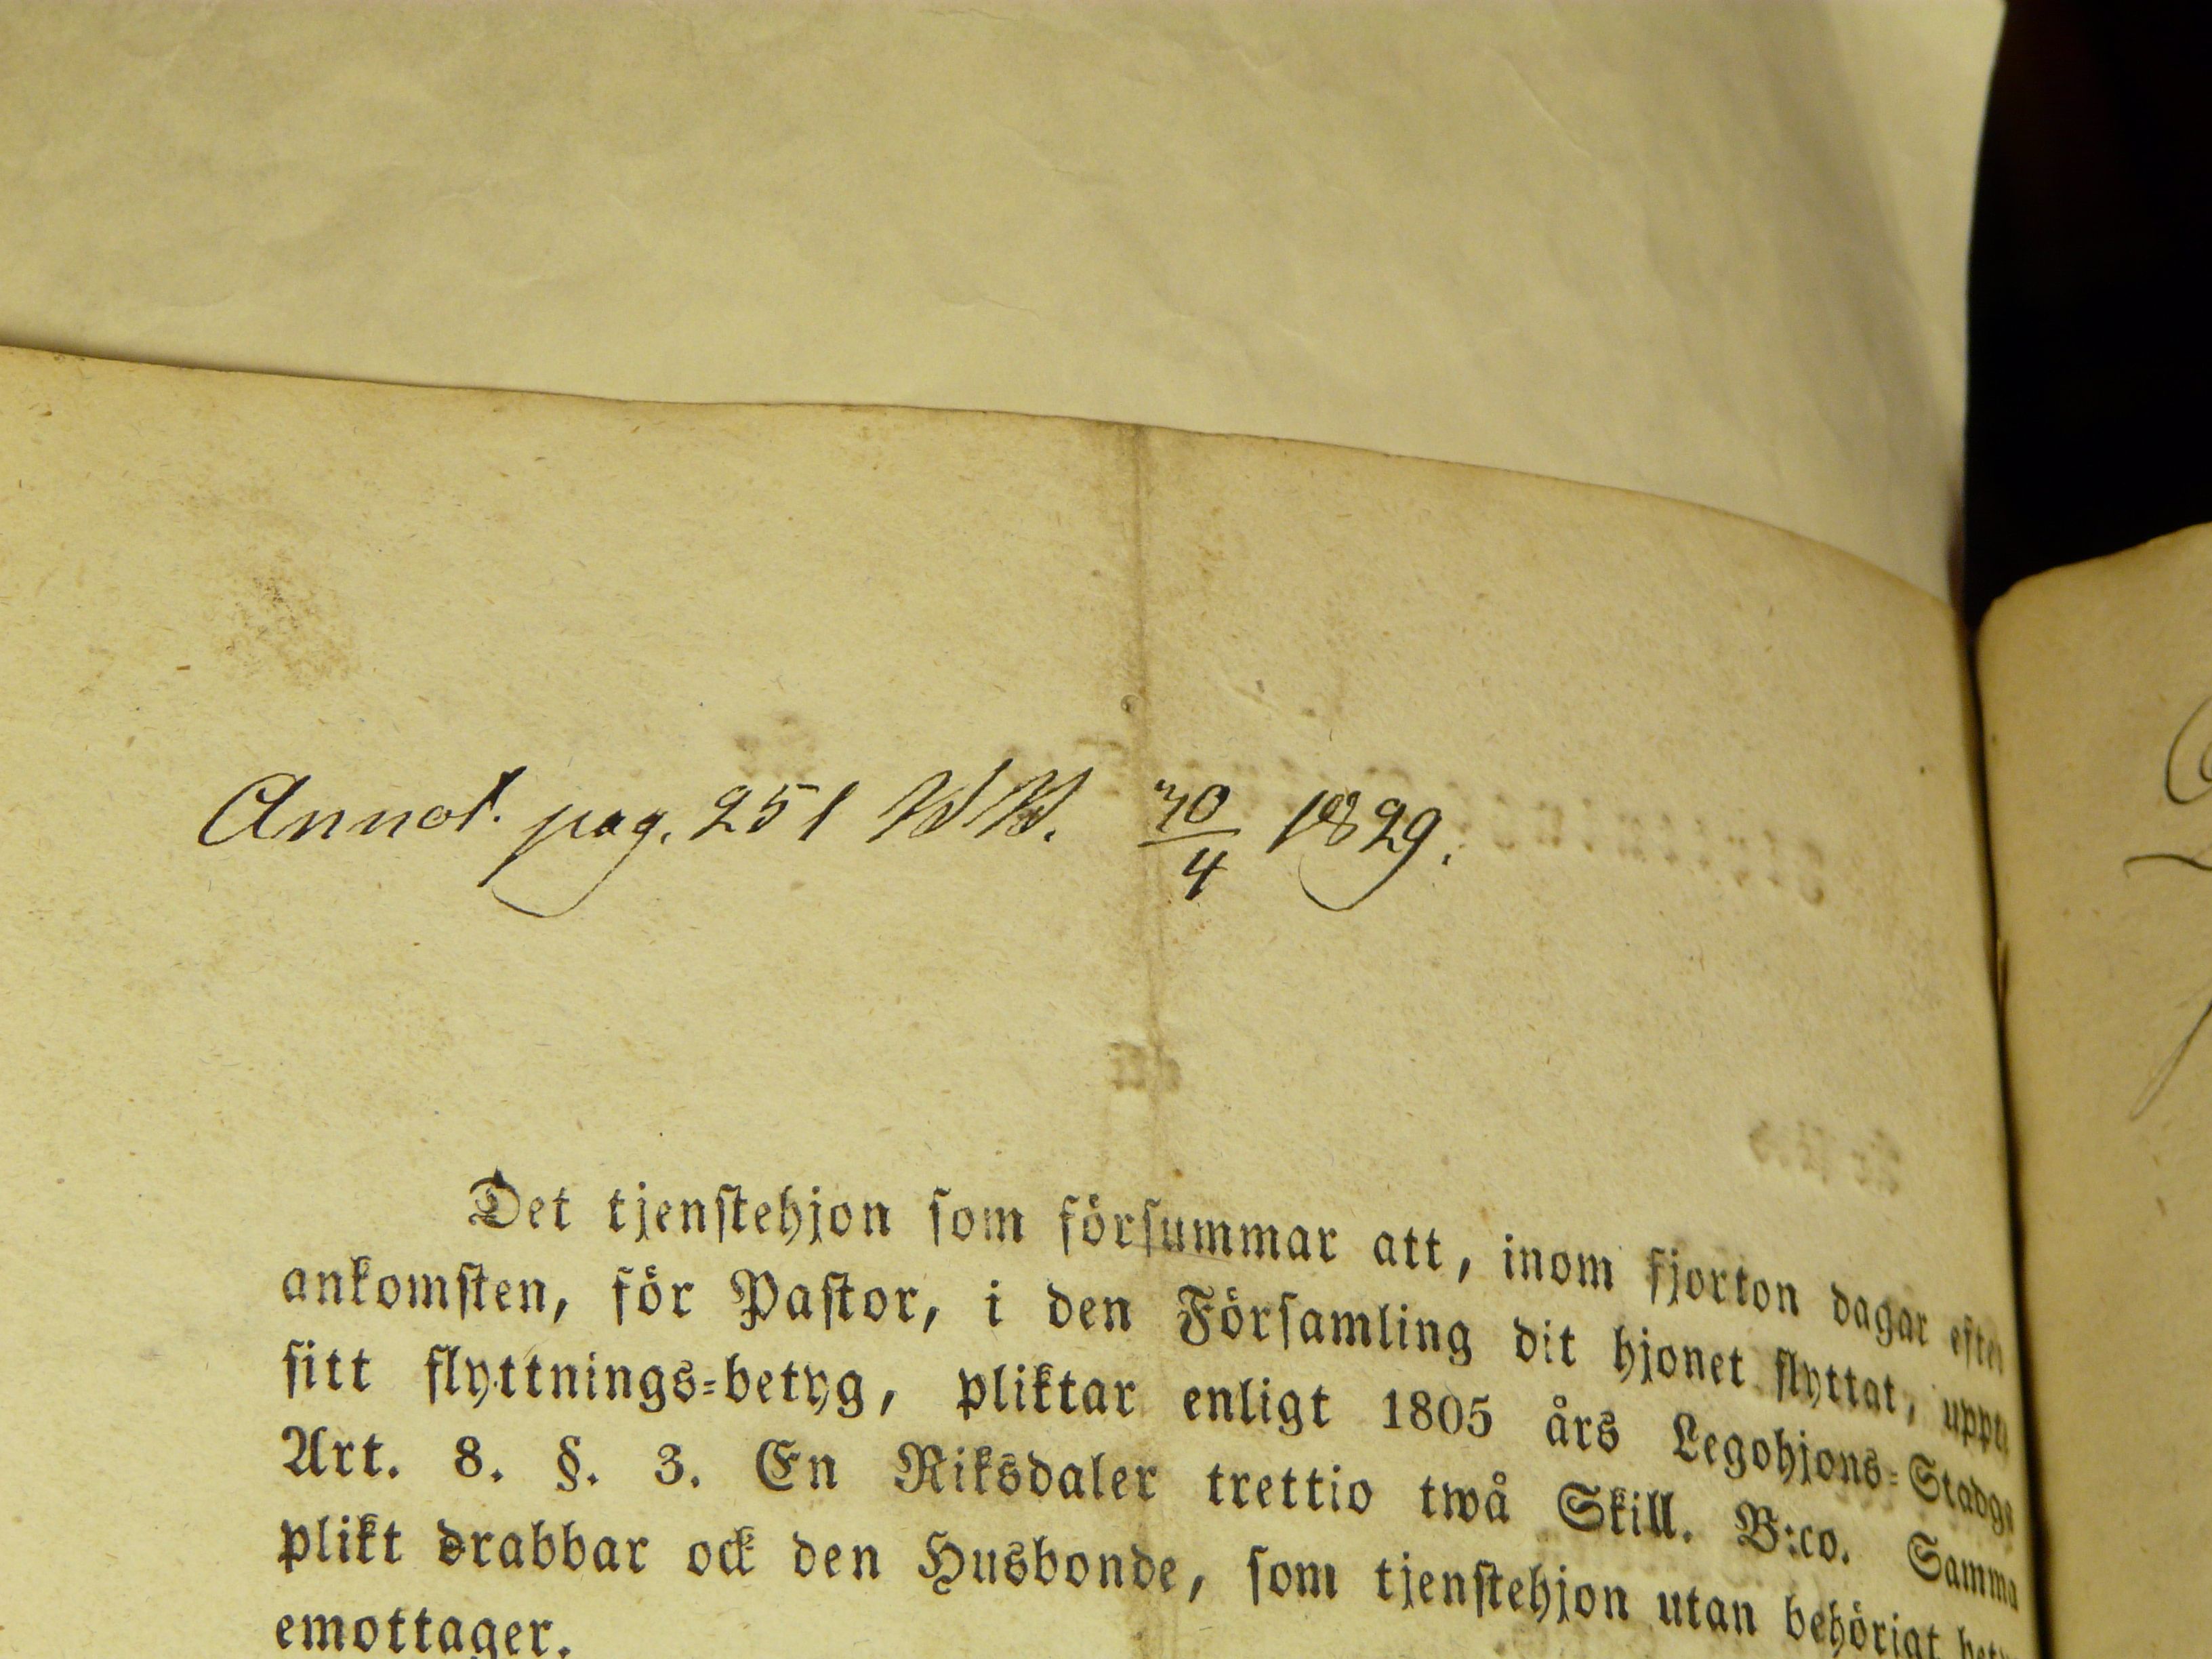 Annot. pag. 251 30/4 1829.
Det tjenstehjon som försummar att, inom fjorton dagar efter
ankomsten, för Pastor, i den Församling dit hjonet flyttat,
sitt flyttnings-betyg, pliktar enligt 1805 års Legohjons-Stadga
Art. 8. §. 3. En Riksdaler trettio twå Skill. B:co. Samma
plikt drabbar ock den Husbonde, som tjenstehjon utan behörigt
emottager.